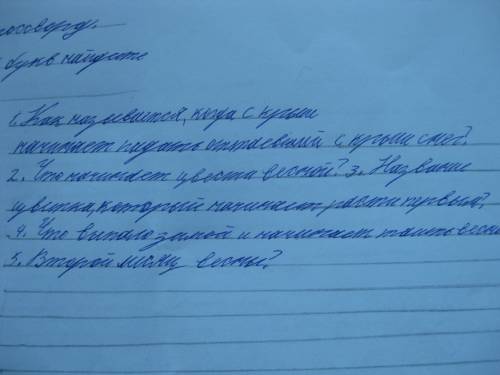 россворду.
букв найдите
1. Как называется, когда с крыши
начинает падать оттаевший с крыши снег?
2. Что начинает цвести весной? 3. Название
цветка, который начинает расти первый?
4. Что выпало зимой и начинает таить весно
5. Второй месяц весны?